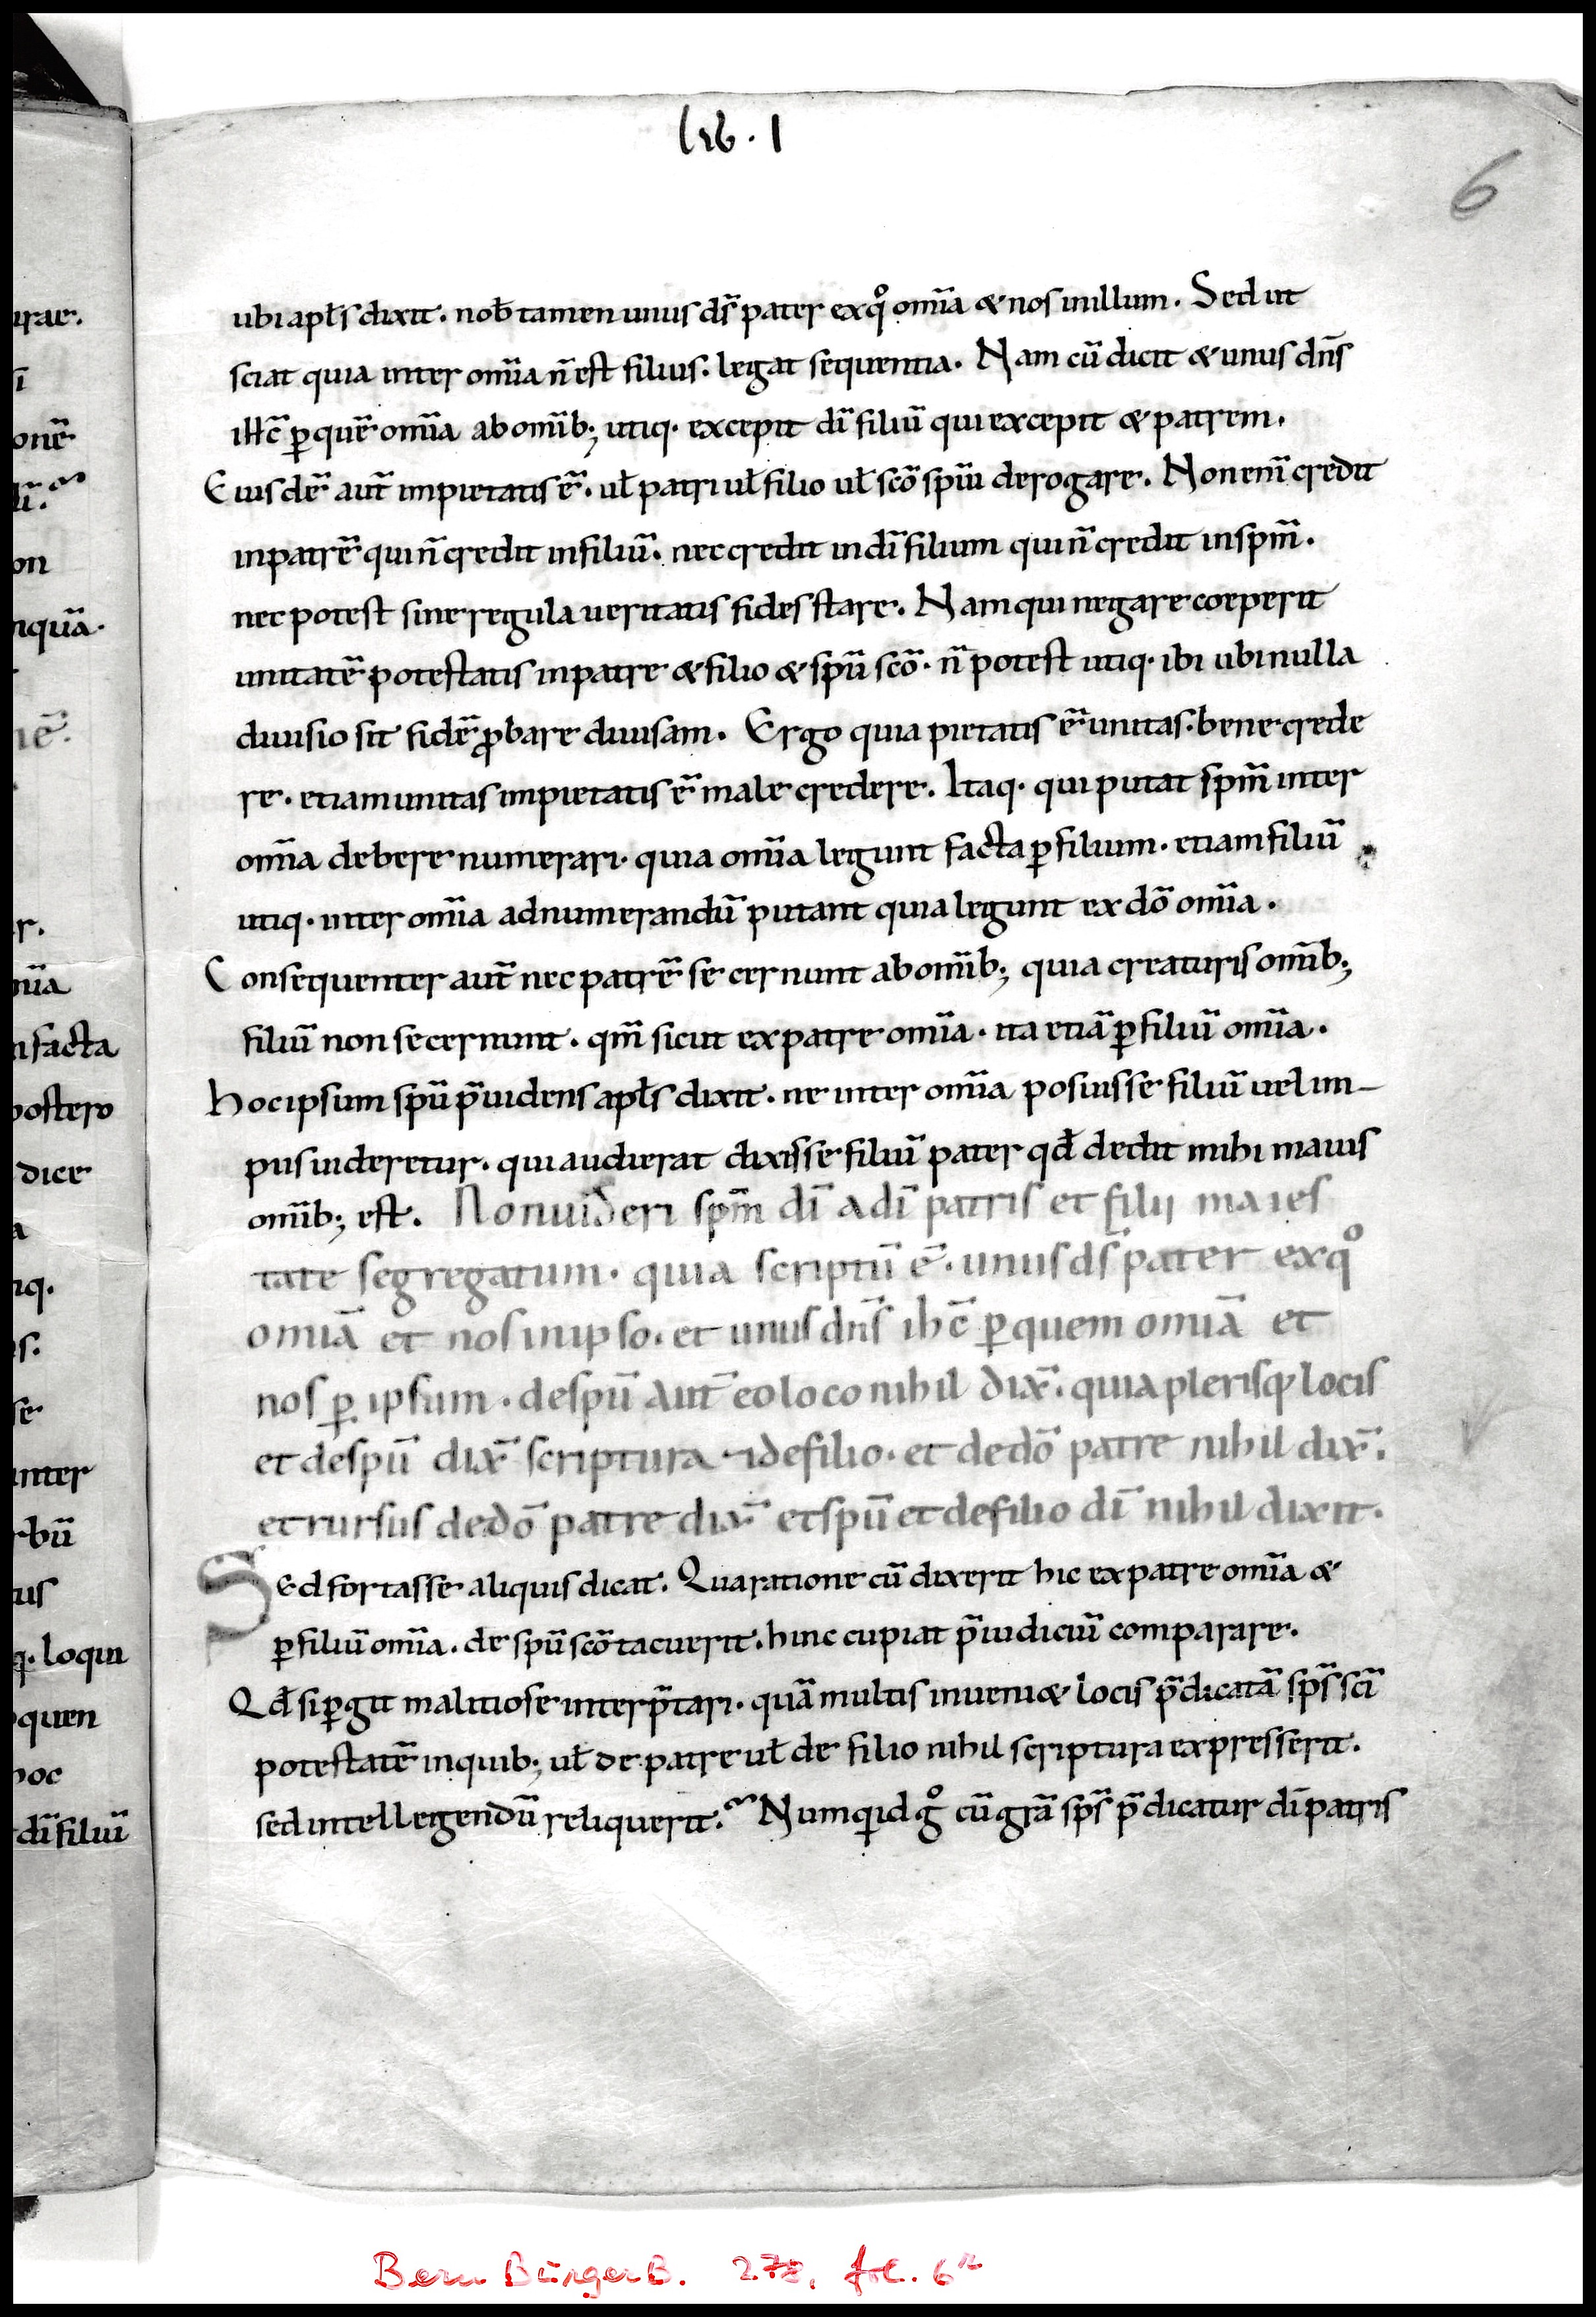 lib. I
6
ubi apłs dixit. nob̄ tamen unus ds̄ pater ex qͦ om̄ia & nos in illum. Sed ut
sciat quia inter om̄ia n̄ est filius. legat sequentia. Nam cū dicit & unus dn̄s
ihc̄ ꝑ quē om̄ia ab om̄ib; utiq. excepit dī filiū qui excepit & patrem.
Eiusdē aut̄ impietatis ē. ul̄ patri ul̄ filio ul̄ scō spīu derogare. Non enī credit
in patrē qui n̄ credit in filiū. nec credit in dī filium qui n̄ credit in spm̄.
nec potest sine regula ueritatis fides stare. Nam qui negare coeperit
unitatē potestatis in patre & filio & spū scō. n̄ potest utiq. ibi ubi nulla
diuisio sit fidē ꝓbare diuisam. Ergo quia pietatis ē unitas. bene crede
re. etiam unitas impietatis ē male credere. Itaq. qui putat spm̄ inter
om̄ia debere numerari. quia om̄ia legunt facta ꝑ filium. etiam filiū
utiq. inter om̄ia adnumerandū putant quia legunt ex dō om̄ia.
Consequenter aut̄ nec patrē secernunt ab om̄ib; quia creaturis om̄ib;
filiū non secernunt. qm̄ sicut ex patre om̄ia. ita etiā ꝑ filiū om̄ia.
hoc ipsum spū p̄uidens apłs dixit. ne inter om̄ia posuisse filiū uel im-
pus uideretur. qui audierat dixisse filiū pater qd̄ dedit mihi maius
om̄ib; est. No n uideri spm̄ dī a dī patris et filii maies
tate segregatum. quia scriptū ē. unus ds̄ pater ex qͦ
omīa et nos in ipso. et unus dn̄s ihc̄ ꝑ quem omīa et
nos ꝑ ipsum. de spū aut̄ eo loco nihil dix̄. quia plerisq; locis
et de spū dix̄ scriptura. id e filio. et de dō patre nihil dix̄.
et rursus de dō patre dix̄ et spū et de filio dī nihil dixit.
Sed fortasse aliquis dicat. Qua ratione cū dixerit hic ex patre om̄ia &
ꝑ filiū om̄ia. de spū scō tacuerit. hinc cupiat p̄iudiciū comparare.
Qd̄ si ꝑgit malitiose interp̄tari. quā multis inueni& locis p̄dicatā sps̄ scī
potestatē in quib; ul̄ de patre ul̄ de filio nihil scriptura expresserit.
sed intellegendū reliquerit. Numqid gͦ cū grā sps̄ p̄dicatur dī patris
urae.
onē
on
nquā.
nē.
r.
facta
postero
dice
a
nq.
s.
se
inter
rbū
us
q. loqui
quen
hoc
dī filiū
Bern BürgerB. 278, fol. 6r